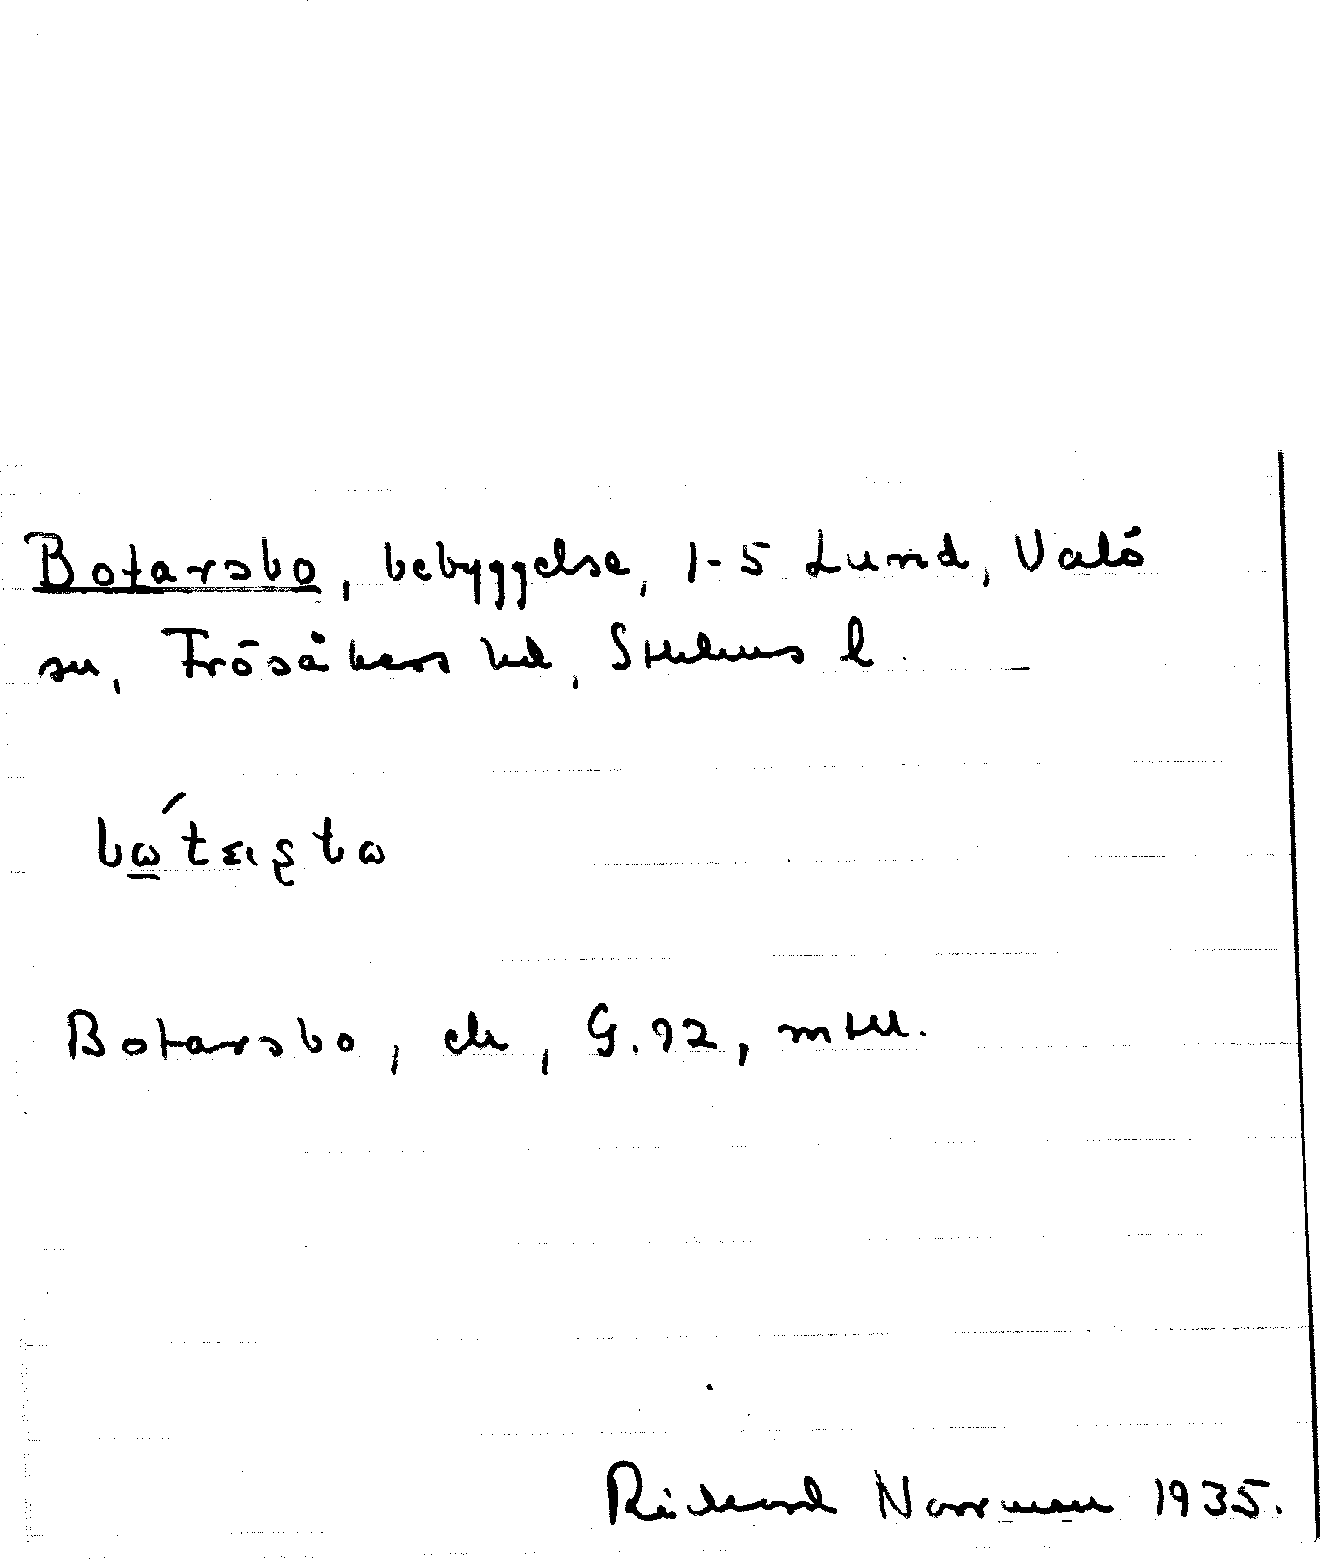 Botarsbo, bebyggelse, 1-5 Lund, Valö
sn, Frösåkers hd, Sthlms l.
Botarsbo, ek, G.92, mtl.
Richard Norrman 1935.